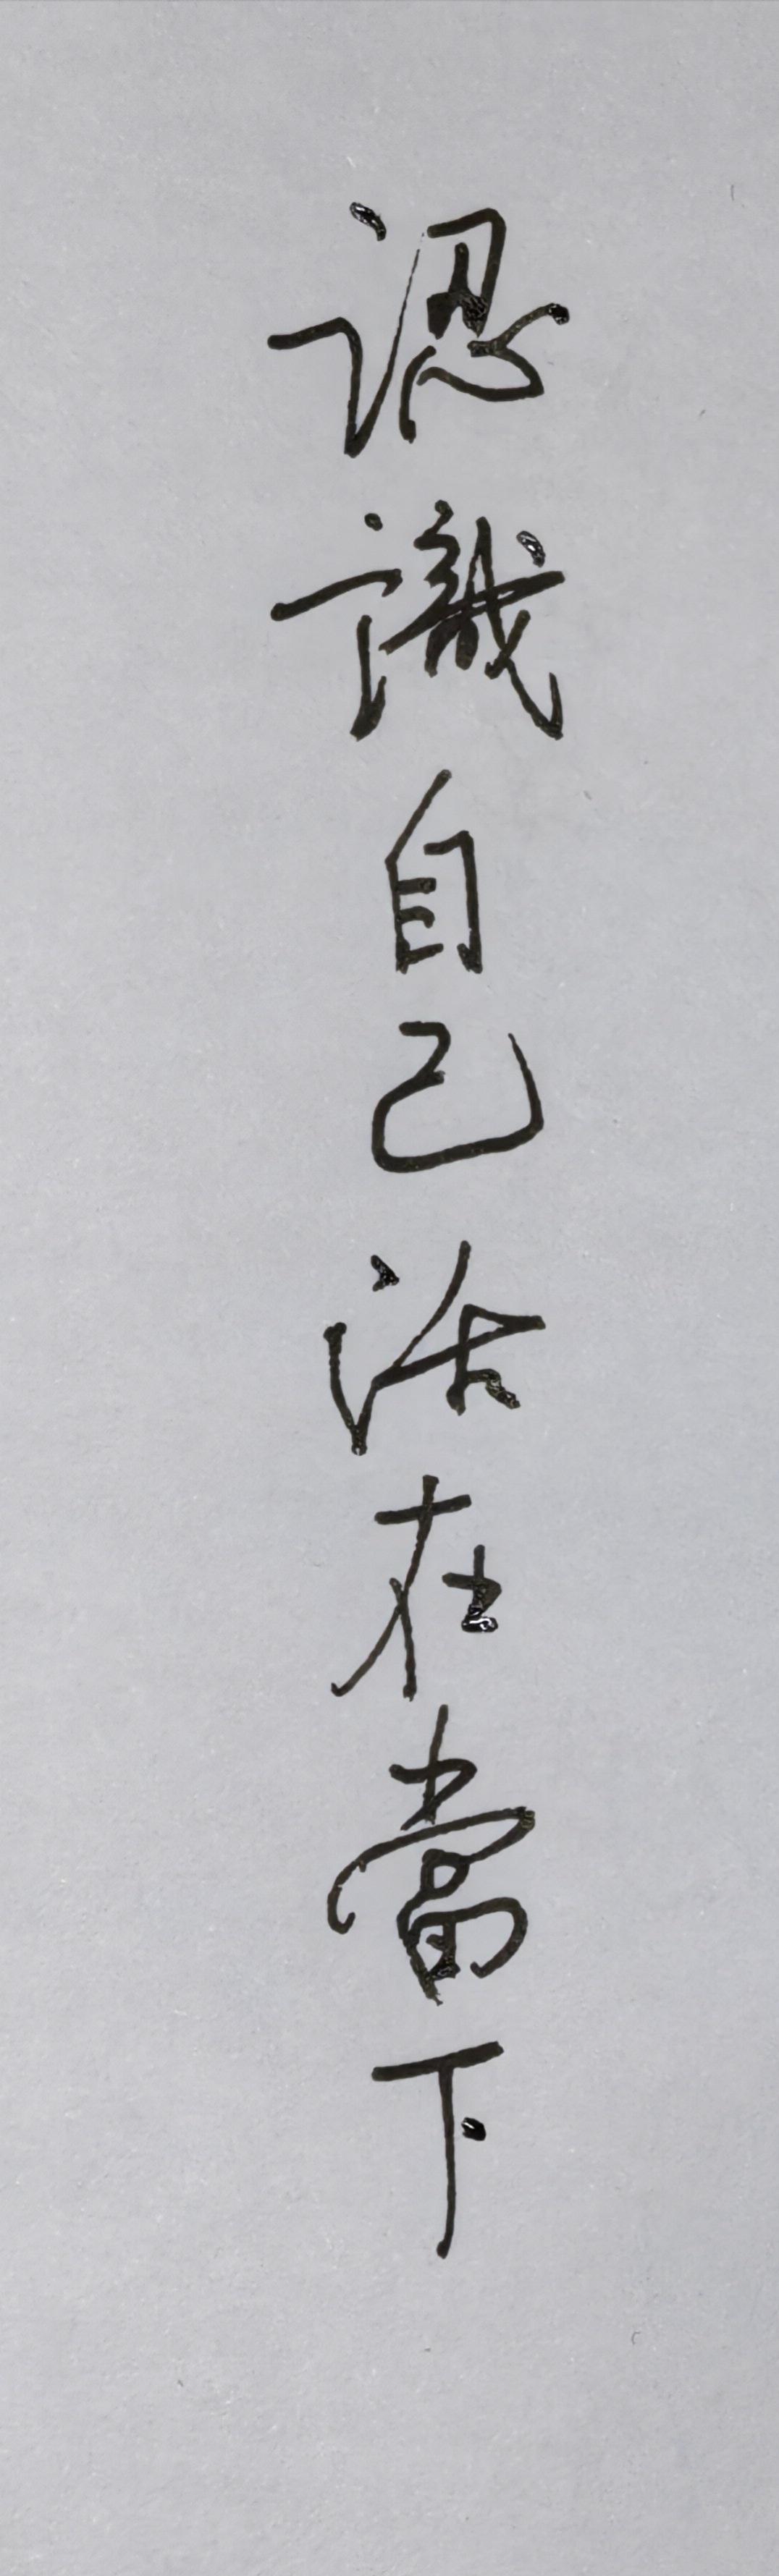 認識自己活在當下